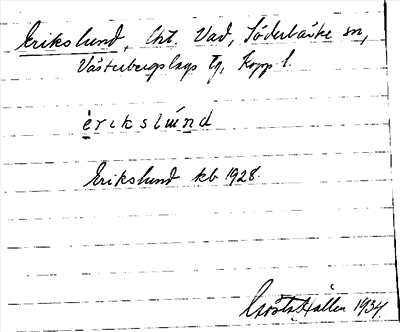 Erikslund, Cht. Vad, Söderbärke sn,
Västerbergslags tg, Kopp. l.
èrikslùnd
Erikslund kb 1928.
Gösta Hallen 1934.